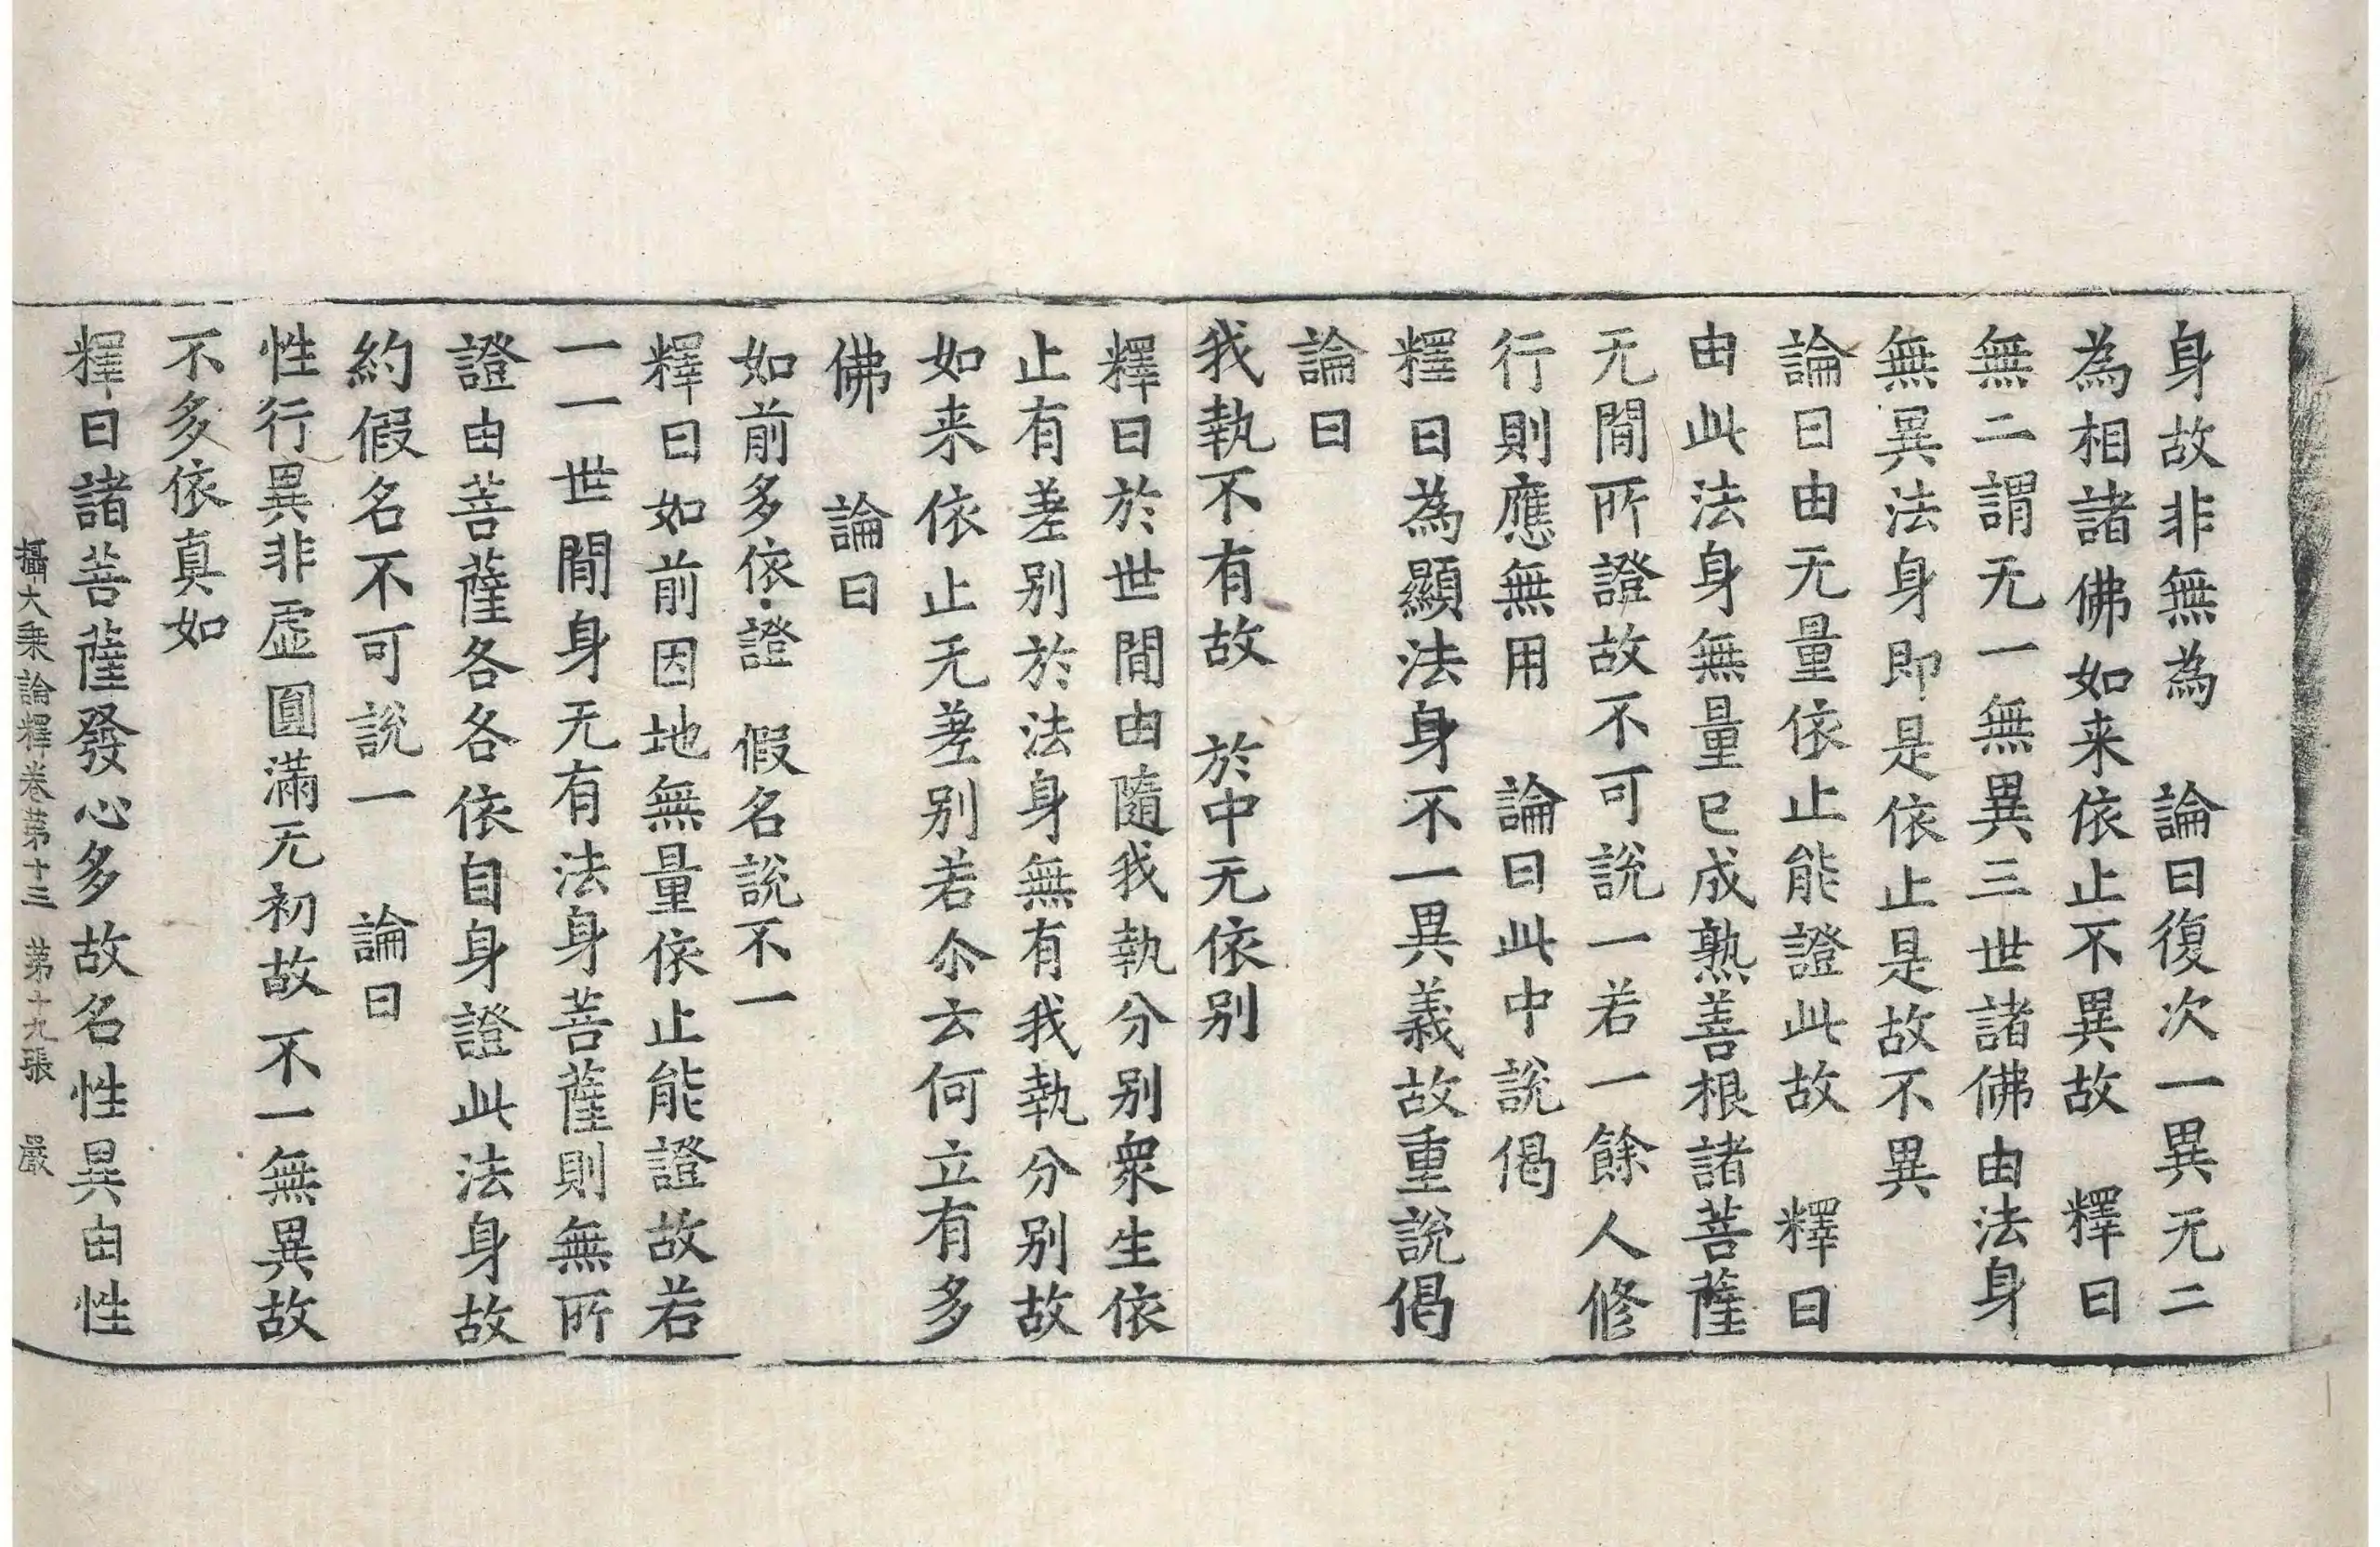 身故非無為　論曰復次一異无二
為相諸佛如来依止不異故　釋曰
無二謂无一無異三世諸佛由法身
無異法身即是依止是故不異
論曰由无量依止能證此故　釋曰
由此法身無量已成熟善根諸菩薩
无間所證故不可說一若一餘人修
行則應無用　論曰此中說偈
釋曰為顯法身不一異義故重說偈
論曰
我執不有故　於中无依别
釋曰於世間由隨我執分别衆生依
止有差别於法身無有我執分别故
如来依止无差别若尒云何立有多
佛　論曰
如前多依證　假名說不一
釋曰如前因地無量依止能證故若
一一世間身无有法身菩薩則無所
證由菩薩各各依自身證此法身故
約假名不可說一　論曰
性行異非虛圓滿无初故不一無異故
不多依真如
釋曰諸菩薩發心多故名性異由性
攝大乘論釋卷第十三　第十九張　嚴